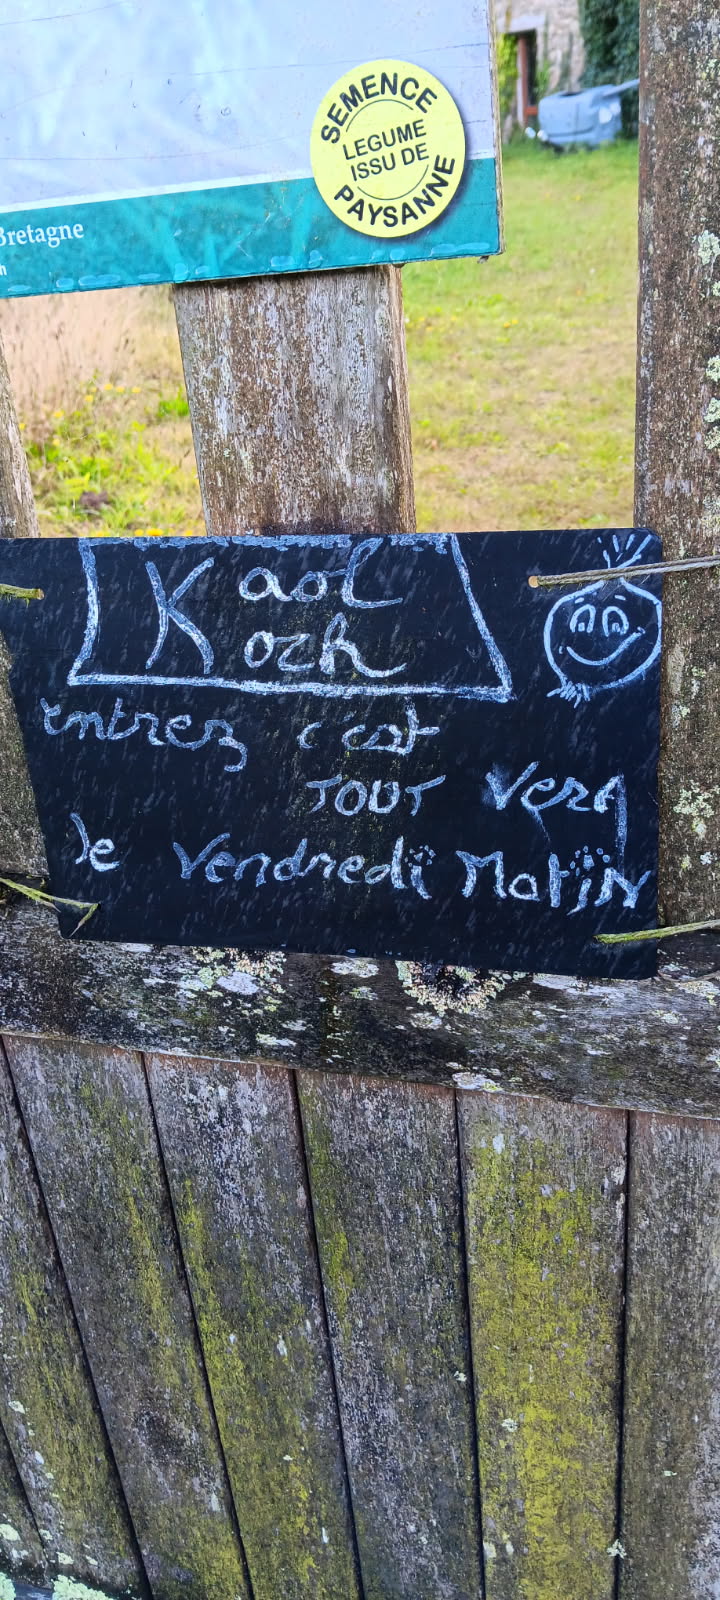 SEMENCE
LEGUME
ISSU DE
PAYSANNE
Bretagne
h
Kaol
Kozh
entrez c'est
TOUT Vert
le Vendredi Matin